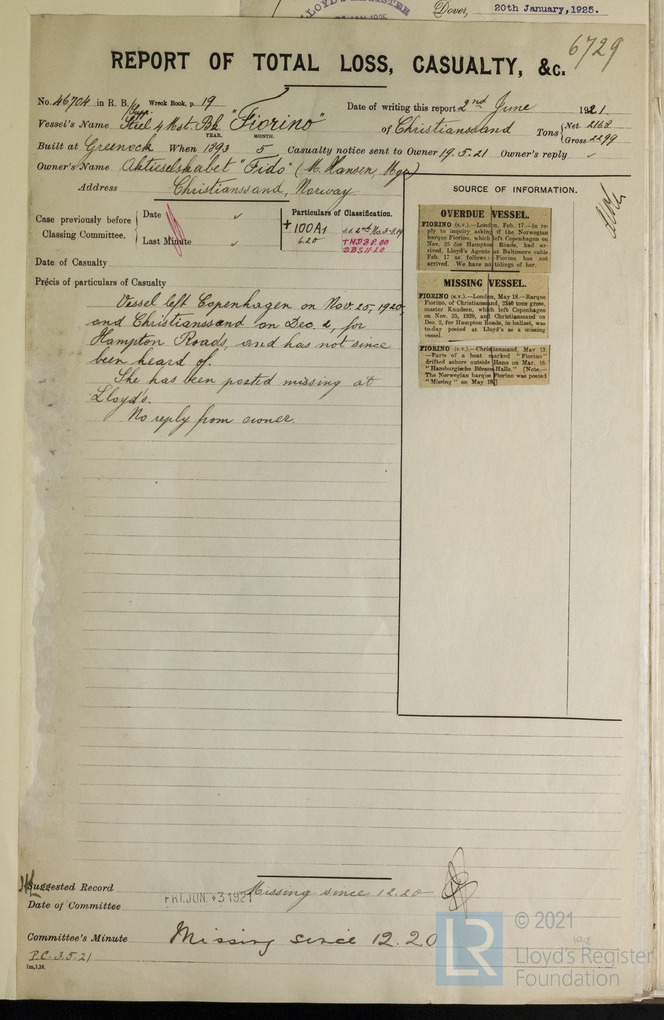 LLOYD'S REGISTER
Dover, 20th January, 1925.
6729
REPORT OF TOTAL LOSS, CASUALTY, &c.
No. 46704 in R. B. Supp. Wreck Book, p. 19
Date of writing this report 2nd June 1921
Vessel's Name Steel 4 Mst. Bk "Fiorino" of Christianssand Tons { Net 2168
Gross 2299
YEAR. MONTH.
Built at Greenock When 1893 5 Casualty notice sent to Owner 19.5.21 Owner's reply ✓
Owner's Name Aktieselskabet "Fido" (M. Hansen, Mgr)
Address Christianssand, Norway
Case previously before Classing Committee. { Date ✓
Last Minute ✓
Particulars of Classification.
+100A1
6.20
TNDB 8.00
DBS 11.20
Date of Casualty
Précis of particulars of Casualty
Vessel left Copenhagen on Nov. 25, 1920,
and Christianssand on Dec. 2, for
Hampton Roads, and has not since
been heard of.
She has been posted missing at
Lloyd's.
No reply from owner.
SOURCE OF INFORMATION.
OVERDUE VESSEL.
FIORINO (s.v.).—London, Feb. 17.—In re-
ply to inquiry asking if the Norwegian
barque Fiorino, which left Copenhagen on
Nov. 25 for Hampton Roads, had ar-
rived, Lloyd's Agents at Baltimore cable
Feb. 17 as follows:—Fiorino has not
arrived. We have no tidings of her.
MISSING VESSEL.
FIORINO (s.v.).—London, May 18.—Barque
Fiorino, of Christianssand, 2340 tons gross,
master Knudsen, which left Copenhagen
on Nov. 25, 1920, and Christianssand on
Dec. 2, for Hampton Roads, in ballast, was
to-day posted at Lloyd's as a missing
vessel.
FIORINO (s.v.).—Christianssand, May 13.
—Parts of a boat marked "Fiorino"
drifted ashore outside Hano on Mar. 18.
"Hamburgische Börsen-Halle." [Note.—
The Norwegian barque Fiorino was posted
"Missing" on May 18.]
Suggested Record Missing since 12.20
Date of Committee FRI. JUN. 3 1921
Committee's Minute Missing since 12.20
P.C. 3.5.21
1m,1,20.
LR
© 2021
Lloyd's Register
Foundation